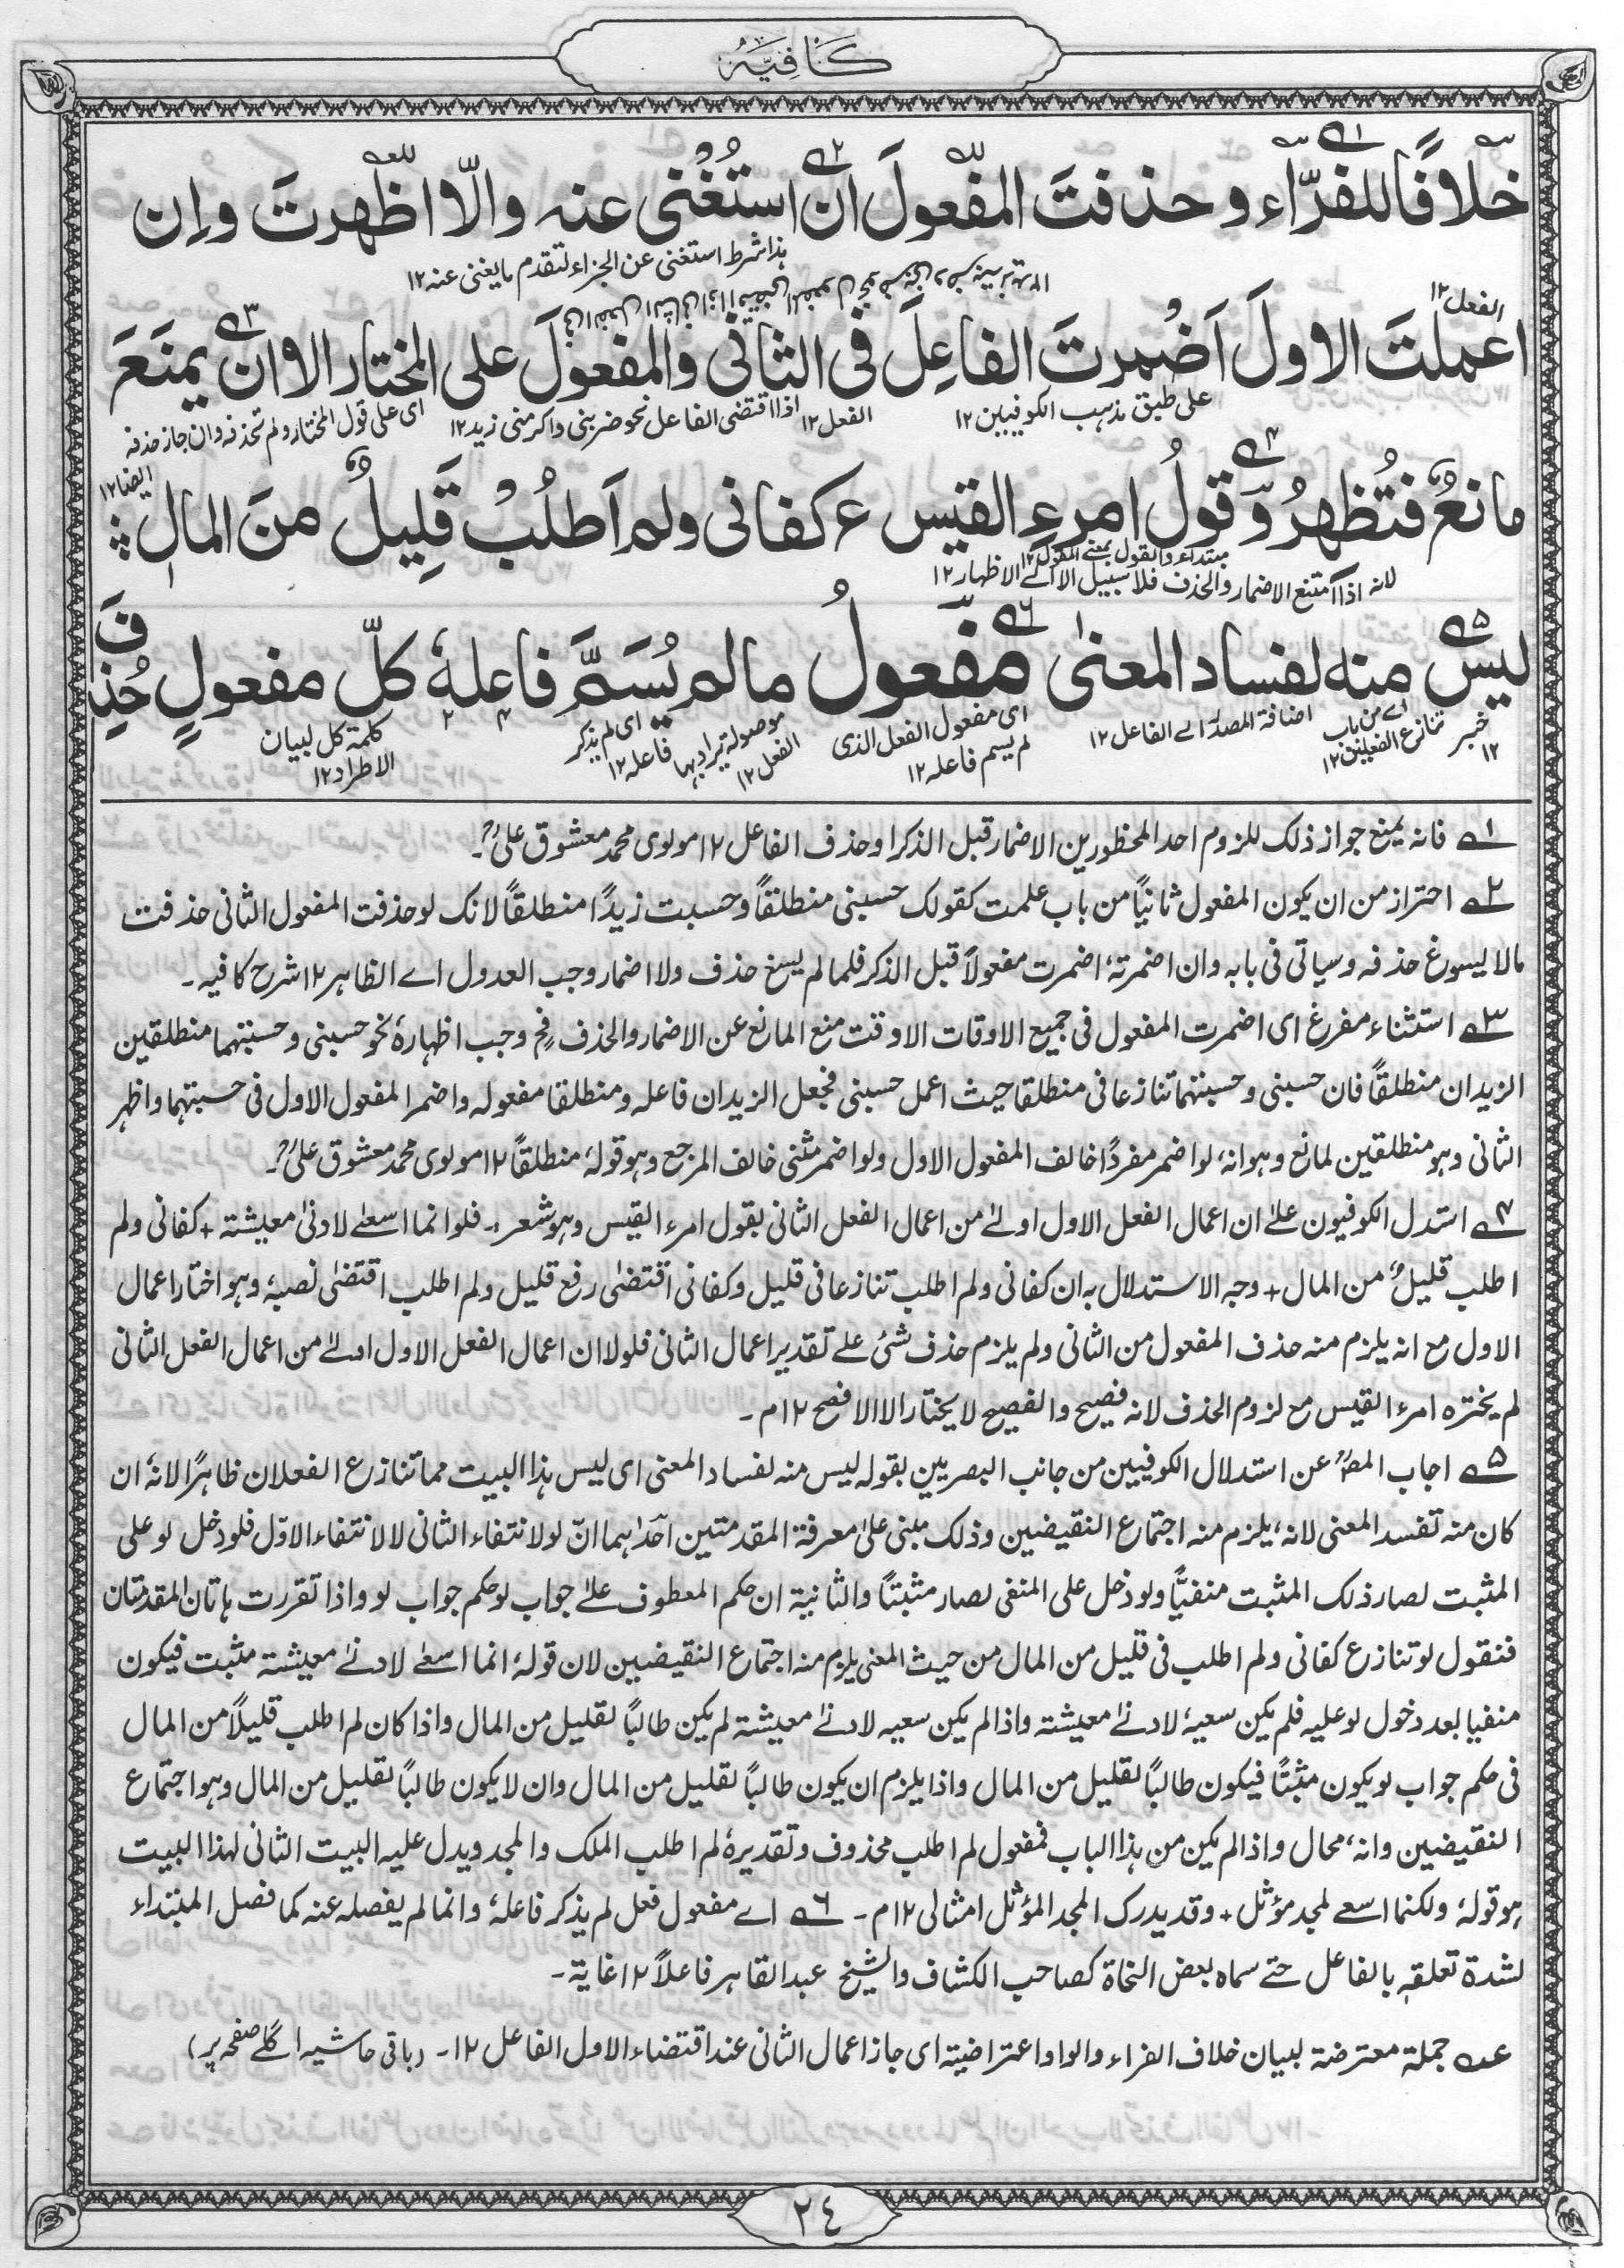 كَافِيَه
خلافًا للفرّاء وحذفتَ المفعولَ ان استُغنى عنه والّا اظهرتَ وإن
هذا شرط استغنى عن الجزاء لتقدم ما يغنى عنه ١٢
الفعل ١٢
اعملتَ الاولَ اَضمرتَ الفاعِلَ فى الثانى والمفعولَ على المختار الا ان يمنَعَ
على طبق مذهب الكوفيين ١٢ الفعل ١٢ اذا اقتضى الفاعل نحو ضربنى واكرمنى زيد ١٢ اى على قول المختار ولم تحذفه وان جاز حذفه
ايضا ١٢
مانعٌ فتُظهرُ وقولُ امرءِ القيس ع كفانى ولم اَطلُبْ قَلِيلٌ منَ المال ؛
مبتداء والقول بمعنى المقول ١٢
لانه اذا امتنع الاضمار والحذف فلا سبيل الا الے الاظهار ١٢
ليس منه لفساد المعنىٰ مفعولُ مالم يُسَمَّ فاعلهٗ كلّ مفعولٍ حُذِفَ
خبر ١٢ اے من باب تنازع الفعلين ١٢ اضافة المصدر الے الفاعل ١٢ اى مفعول الفعل الذى لم يسم فاعله ١٢ موصولة يراد بها الفعل ١٢ اى لم يذكر فاعله ١٢ كلمة كل لبيان الاطراد ١٢
١ فانه يمنع جواز ذلك للزوم احد المحظورين الاضمار قبل الذكر او حذف الفاعل ١٢ مولوى محمد معشوق علىؒ۔
٢ احتراز من ان يكون المفعول ثانيًا من باب علمت كقولك حسبنى منطلقًا وحسبت زيدًا منطلقًا لانك لو حذفت المفعول الثانى حذفت
مالا يسوغ حذفه وسياتى فى بابه وان اضمرته٬ اضمرت مفعولاً قبل الذكر فلما لم يسغ حذف ولا اضمار وجب العدول اے الظاهر ١٢ شرح كافيه۔
٣ استثناء مفرغ اى اضمرت المفعول فى جميع الاوقات الا وقت منع المانع عن الاضمار والحذف فح وجب اظهارهٗ نحو حسبنى وحسبتهما منطلقين
الزيدان منطلقًا فان حسبنى وحسبتهما تنازعا فى منطلقا حيث اعمل حسبنى فجعل الزيدان فاعله ومنطلقا مفعوله واضمر المفعول الاول فى حسبتهما واظهر
الثانى وهو منطلقين لمانع وهو انه٬ لو اضمر مفردًا خالف المفعول الاول ولو اضمر مثنى خالف المرجع وهو قولهٗ منطلقًا ١٢ مولوى محمد معشوق علىؒ۔
٤ استدل الكوفيون علےٰ ان اعمال الفعل الاول اولےٰ من اعمال الفعل الثانى بقول امرء القيس وهو شعر ؛۔ فلو انما اسعےٰ لادنىٰ معيشته + كفانى ولم
اطلب قليلٌ من المال + وجه الاستدلال به ان كفانى ولم اطلب تنازعا فى قليل وكفانى اقتضىٰ رفع قليل ولم اطلب اقتضىٰ نصبهٗ وهو اختار اعمال
الاول مع انه يلزم منه حذف المفعول من الثانى ولم يلزم حذف شئ علے تقدير اعمال الثانى فلولا ان اعمال الفعل الاول اولےٰ من اعمال الفعل الثانى
لم يختره امرء القيس مع لزوم الحذف لانه فصيح والفصيح لا يختار الا الافصح ١٢ م۔
٥ اجاب المصؒ عن استدلال الكوفيين من جانب البصريين بقوله ليس منه لفساد المعنى اى ليس هذا البيت مما تنازع الفعلان ظاهرًا لانهٗ ان
كان منه تفسد المعنى لانه٬ يلزم منه اجتماع النقيضين وذلك مبنى علىٰ معرفة المقدمتين احداهما انّ لو لانتفاء الثانى لا لانتفاء الاوّل فلو دخل لو على
المثبت لصار ذلك المثبت منفيًّا ولو دخل على المنفى لصار مثبتًا والثانية ان حكم المعطوف علےٰ جواب لو حكم جواب لو واذا تقررت هاتان المقدمتان
فنقول لو تنازع كفانى ولم اطلب فى قليل من المال من حيث المعنى يلزم منه اجتماع النقيضين لان قولهٗ انما اسعےٰ لادنےٰ معيشة مثبت فيكون
منفيا بعد دخول لو عليه فلم يكن سعيه٬ لادنےٰ معيشته واذا لم يكن سعيه لادنےٰ معيشة لم يكن طالبًا لقليل من المال واذا كان لم اطلب قليلاً من المال
فى حكم جواب لو يكون مثبتًا فيكون طالبًا لقليل من المال واذا يلزم ان يكون طالبًا لقليل من المال وان لا يكون طالبًا لقليل من المال وهو اجتماع
النقيضين وانه٬ محال واذا لم يكن من هذا الباب فمفعول لم اطلب محذوف وتقديرهٗ لم اطلب الملك والمجد ويدل عليه البيت الثانى لهذا البيت
هو قولهٗ ولكنما اسعے لمجد مؤثل + وقد يدرك المجد المؤثل امثالى ١٢ م۔ ٦ اے مفعول فعل لم يذكر فاعلهٗ وانما لم يفصله عنه كما فصل المبتداء
لشدة تعلقه بالفاعل حتے سماه بعض النحاة كصاحب الكشاف والشيخ عبدالقاهر فاعلاً ١٢ غاية۔
عه جملة معترضة لبيان خلاف الفراء والواو اعتراضية اى جاز اعمال الثانى عند اقتضاء الاول الفاعل ١٢۔ (باقى حاشيه اگلے صفحه پر)
٢٤